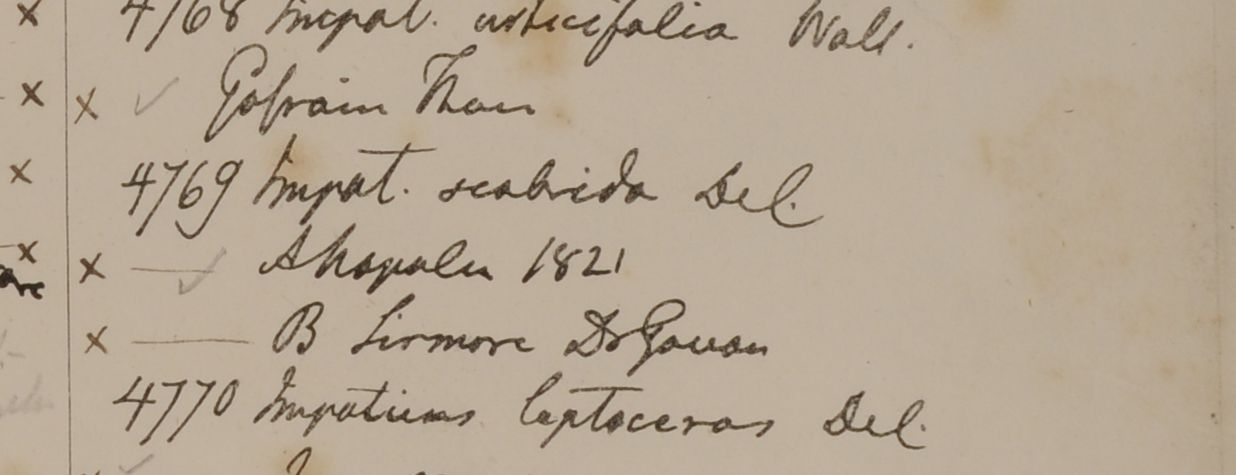 4768 Impat. urticifolia Wall.
× × ✓ Gosain Than
4769 Impat. scabrida Del.
× × — ✓ A Napalu 1821
× — B Sirmore Dr Govan
4770 Impatiens leptoceras Del.